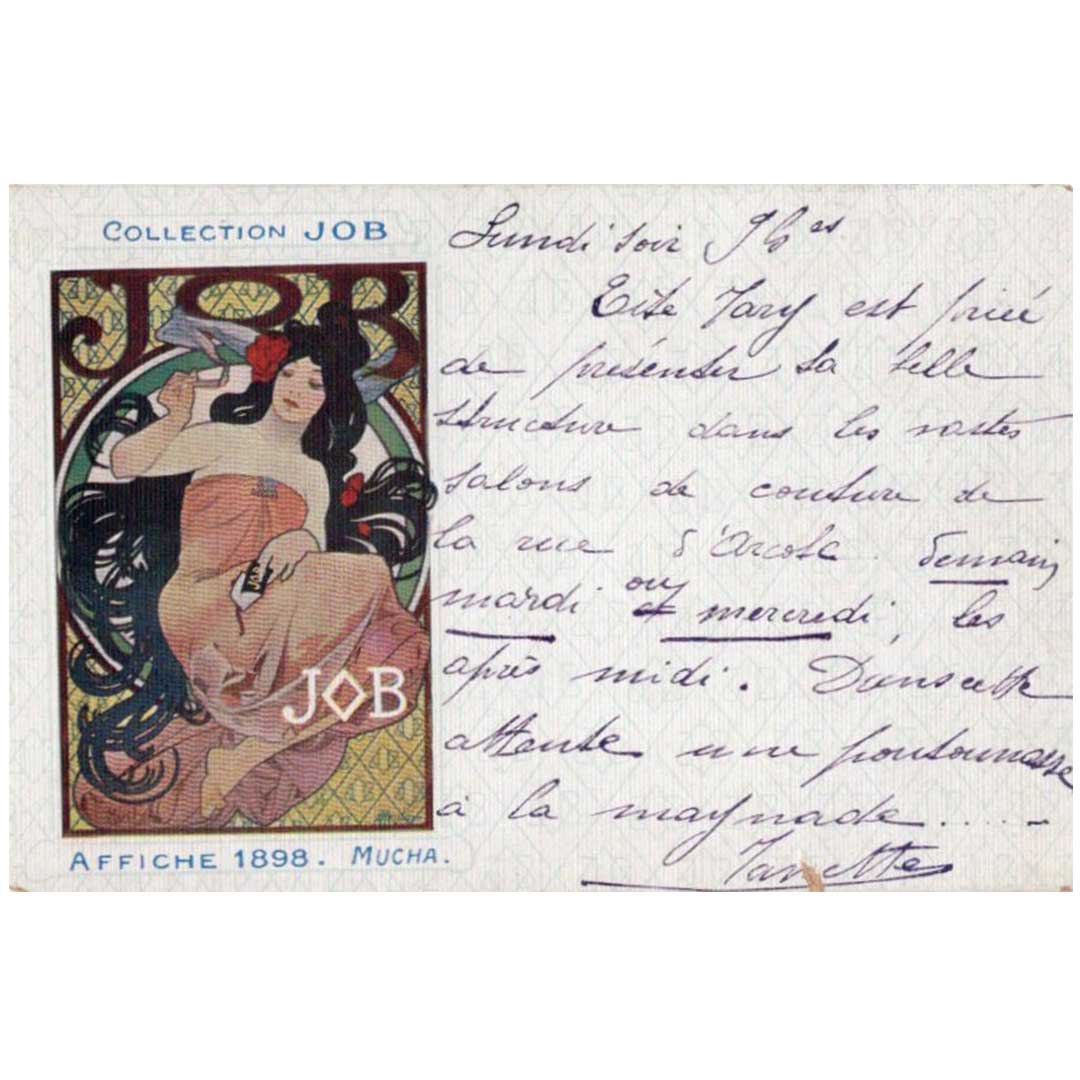 COLLECTION JOB
JOB
JOB
AFFICHE 1898. MUCHA.
Lundi soir
est priée
de présenter sa belle
structure dans les vastes
salons de couture de
la rue d'Arcole. Demain
mardi ou mercredi, les
après midi. Dans cette
attente une poutounasse
à la maynade.....